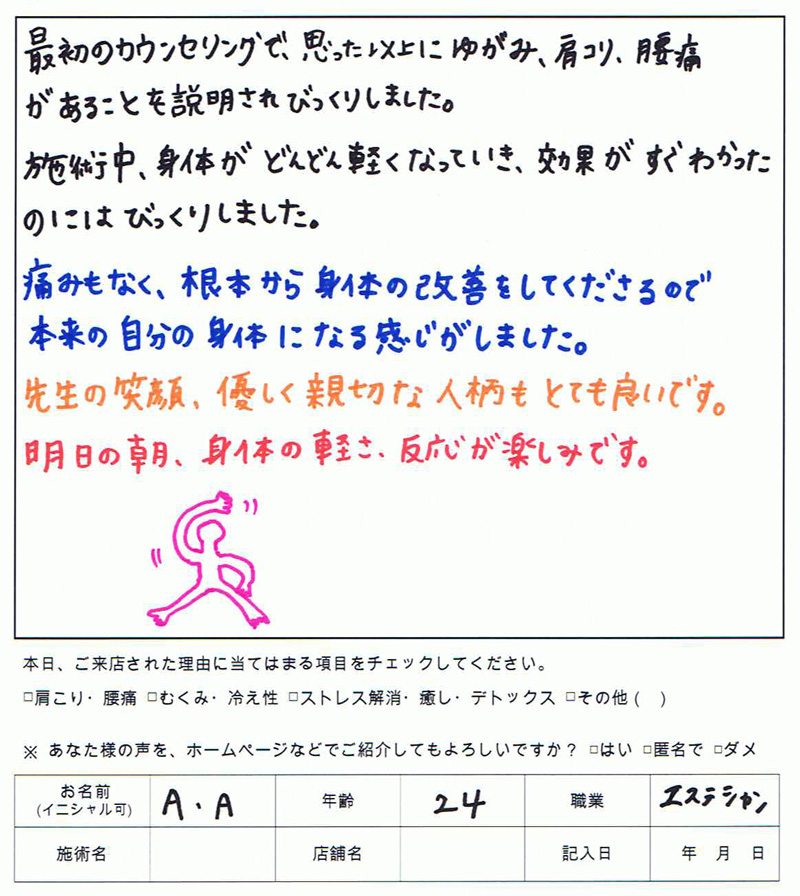 最初のカウンセリングで、思った以上にゆがみ、肩コリ、腰痛
があることを説明されびっくりしました。
施術中、身体がどんどん軽くなっていき、効果がすぐわかった
のにはびっくりしました。
痛みもなく、根本から身体の改善をしてくださるので
本来の自分の身体になる感じがしました。
先生の笑顔、優しく親切な人柄もとても良いです。
明日の朝、身体の軽さ、反応が楽しみです。
本日、ご来店された理由に当てはまる項目をチェックしてください。
□肩こり・腰痛 □むくみ・冷え性 □ストレス解消・癒し・デトックス □その他 ( )
※ あなた様の声を、ホームページなどでご紹介してもよろしいですか？ □はい □匿名で □ダメ
お名前 (イニシャル可) A.A 年齢 24 職業 エステシャン
施術名 店舗名 記入日 年 月 日